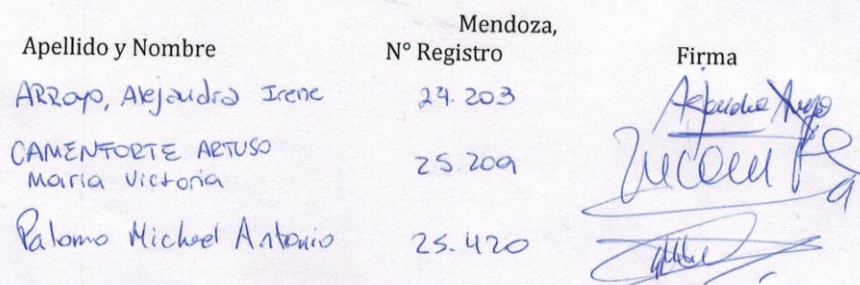 Mendoza,
Apellido y Nombre N° Registro Firma
ARROYO, Alejandra Irene 24.203 Alejandra Arroyo
CAMENFORTE ARTUSO
Maria Victoria 25.209
Palomo Michael Antonio 25.420